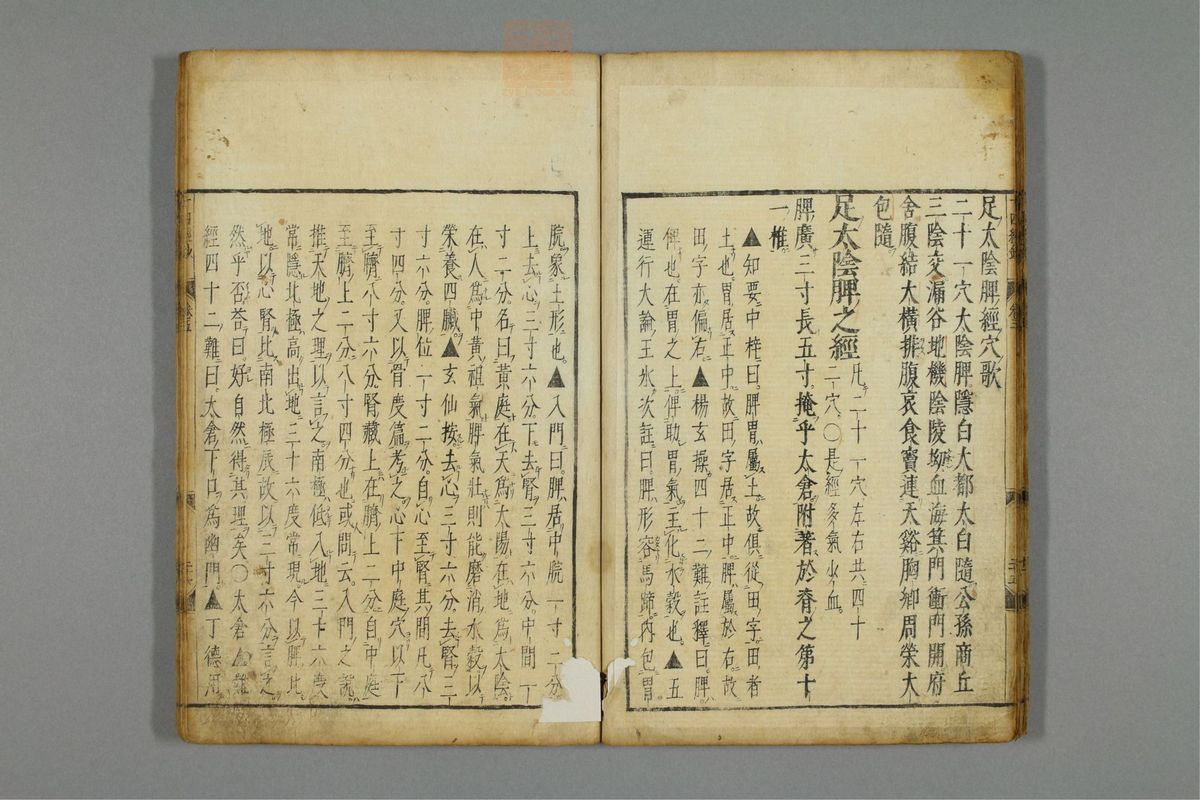 足太陰脾經穴歌
二十一穴太陰脾隱白大都太白隨公孫商丘
三陰交漏谷地機陰陵坳血海箕門衝門開府
舍腹結大橫排腹哀食竇連天谿胸鄉周榮大
包隨
足太陰脾之經凡二十一穴左右共四十
二穴〇是經多氣少血
脾廣三寸長五寸掩乎太倉附著於脊之第十
一椎
▲知要中梓曰脾胃屬土故俱從田字田者
土也胃居正中故田字居正中脾屬於右故
田字亦偏右▲楊玄操四十二難註釋曰脾
俾也在胃之上俾助胃氣主化水穀也▲五
運行大論王氷次註曰脾形容馬蹄內包胃
脘象土形也▲入門曰脾居中脘一寸二分
上去心三寸六分下去腎三寸六分中間一
寸二分名曰黃庭在天爲太陽在地爲太陰
在人爲中黃祖氣脾氣壯則能磨消水穀以
榮養四臟▲玄仙按去心三寸六分去腎三
寸六分脾位一寸二分自心至腎其間凡八
寸四分又以骨度篇考之心下中庭穴以下
至臍八寸六分腎藏上在臍上二分自中庭
至臍上二分八寸四分也或問云入門之說
推天地之理以言之南極低入地三十六度
常隱北極高出地三十六度常現今以脾比
地以心腎比南北極辰故以三寸六分言之
然乎否荅曰好自然得其理矣〇太倉▲難
經四十二難曰太倉下口爲幽門▲丁德用